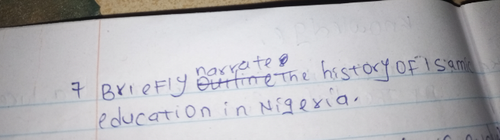 7 Briefly narrate the history of Islamic
education in Nigeria.